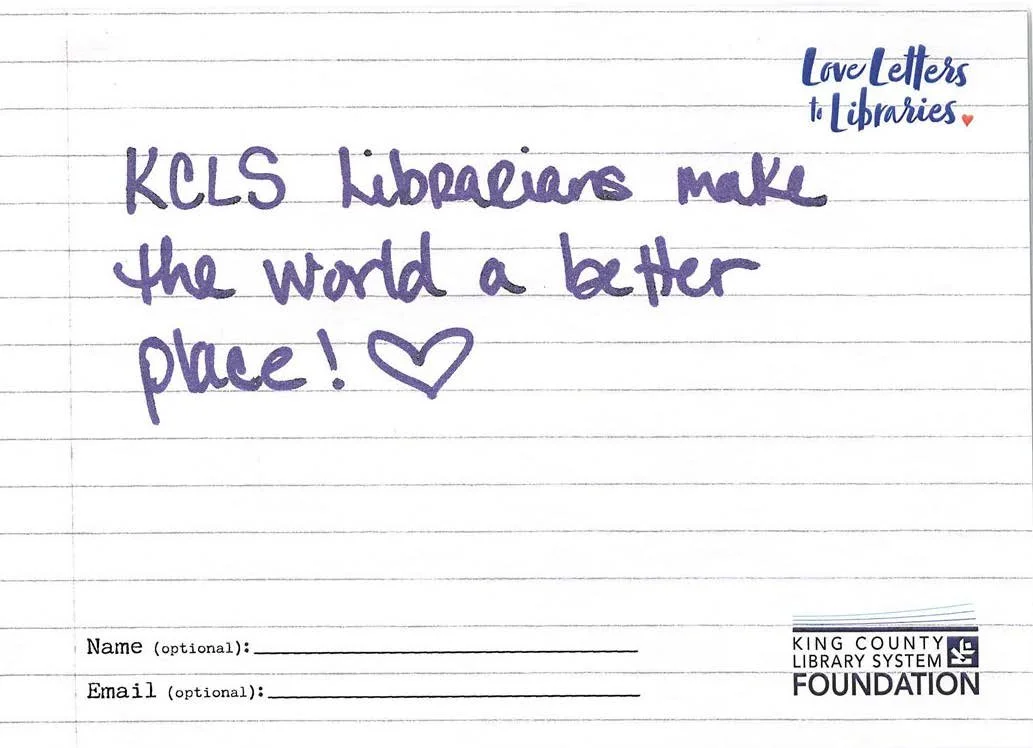 Love Letters
to Libraries.
KCLS Librarians make
the world a better
place! ♡
Name (optional):
Email (optional):
KING COUNTY
LIBRARY SYSTEM
FOUNDATION